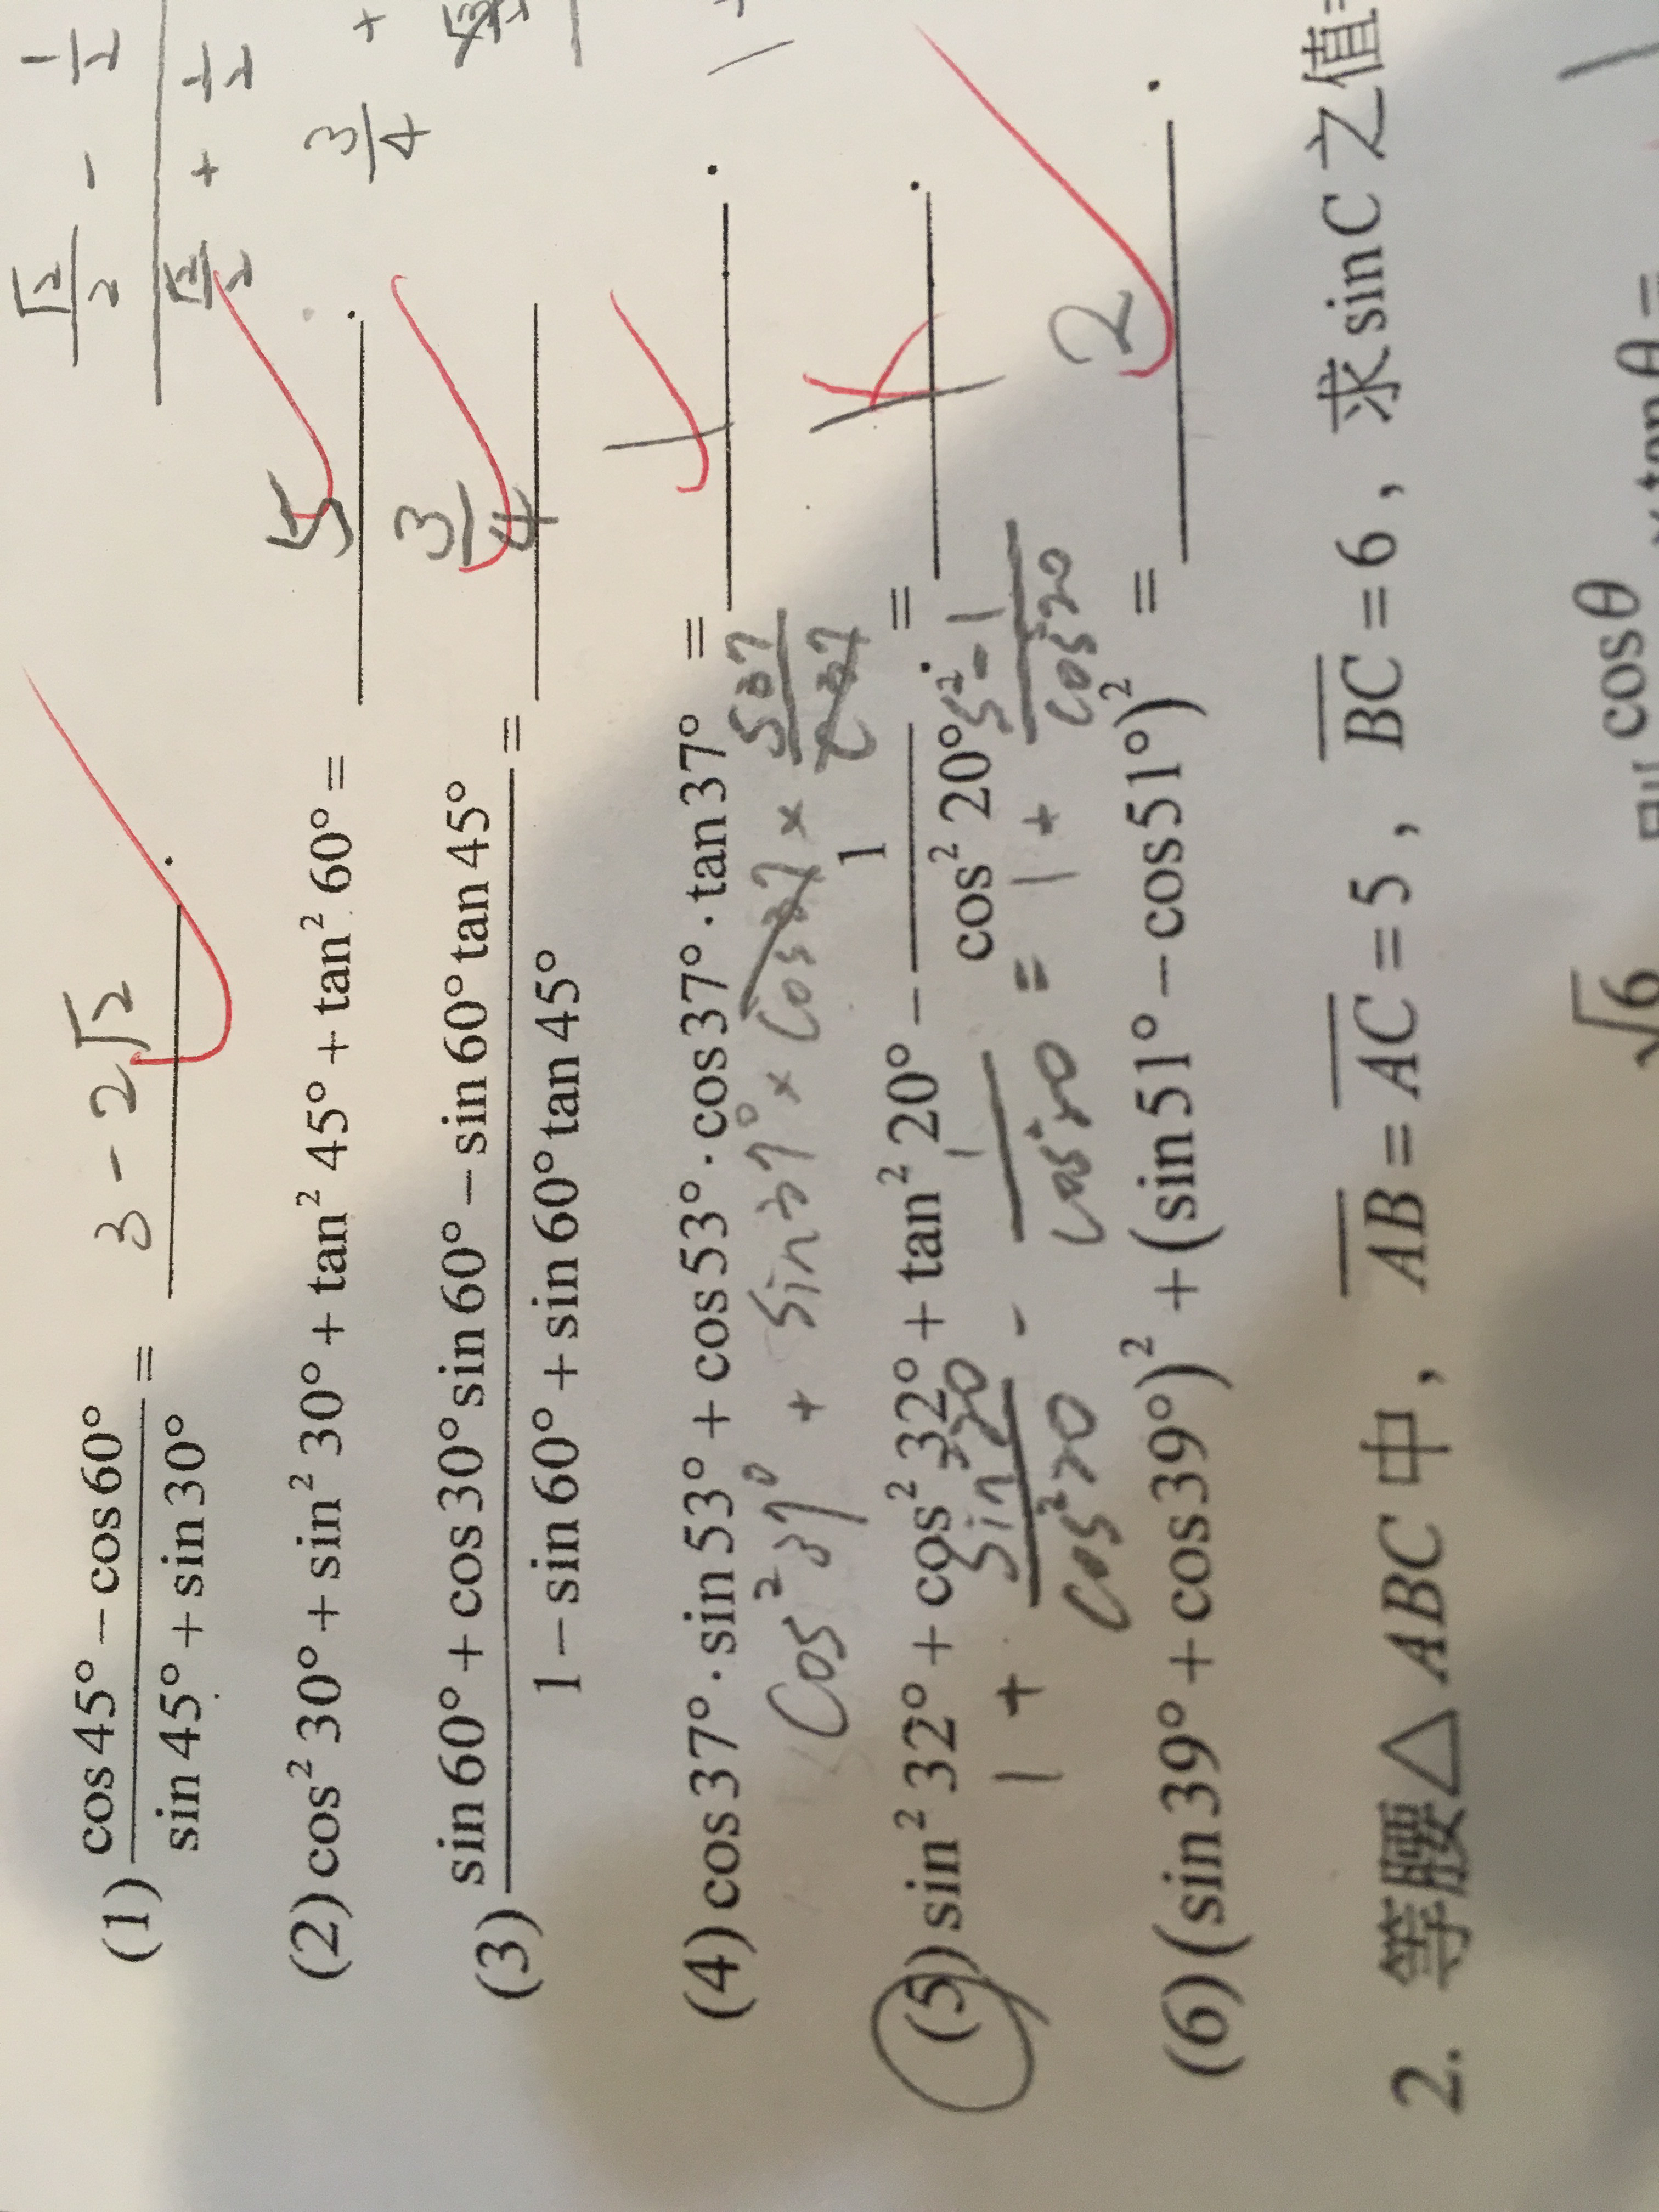 (1) (cos45°−cos60°)/(sin45°+sin30°) = 3 - 2√2 .
(√2/2 - 1/2)/(√2/2 + 1/2)
(2) cos²30°+sin²30°+tan²45°+tan²60°= 5 .
3/4 +
(3) (sin60°+cos30°sin60°−sin60°tan45°)/(1−sin60°+sin60°tan45°) = 3/4
(4) cos37°·sin53°+cos53°·cos37°·tan37° = 1 .
cos²37° + sin37° × cos37 ×
(5) sin²32°+cos²32°+tan²20°−1/cos²20° = 1 .
1 + sin²20/cos²20 - 1/cos²20 = 1 +
(6) (sin39°+cos39°)²+(sin51°−cos51°)² = 2 .
2. 等腰△ABC 中，AB=AC=5，BC=6，求sinC之值=
√6
cosθ
tanθ=